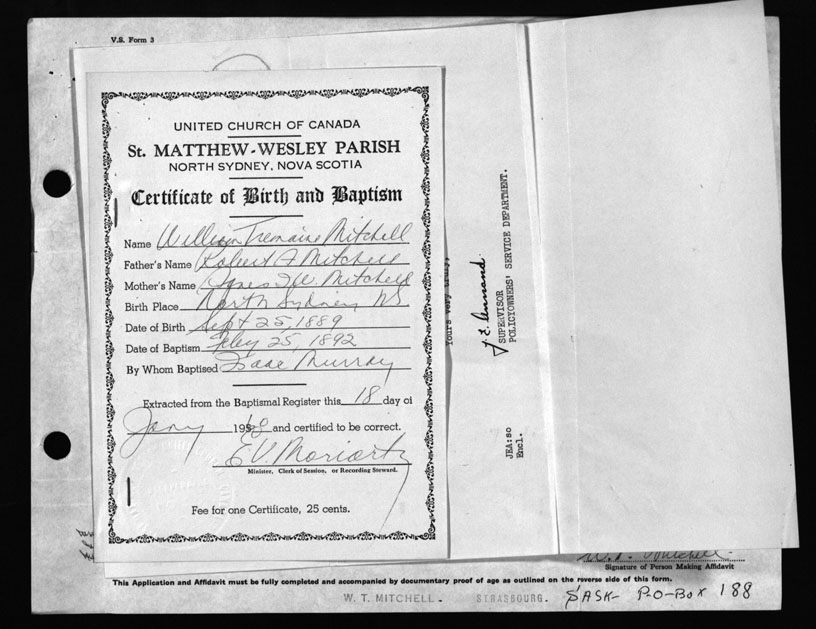 V.S. Form 3
UNITED CHURCH OF CANADA
St. MATTHEW-WESLEY PARISH
NORTH SYDNEY, NOVA SCOTIA
Certificate of Birth and Baptism
Name William Tremaine Mitchell
Father's Name Robert A Mitchell
Mother's Name Agnes Mitchell
Birth Place North Sydney NS
Date of Birth Sept 25, 1889
Date of Baptism Feby 25, 1892
By Whom Baptised Isaac Murray
Extracted from the Baptismal Register this 18 day of
Jany 19 and certified to be correct.
E V. Moriarty
Minister, Clerk of Session, or Recording Steward.
Fee for one Certificate, 25 cents.
Yours very truly,
J. E. Annand
SUPERVISOR
POLICYOWNERS' SERVICE DEPARTMENT.
JEA:so
Encl.
W. T. Mitchell
Signature of Person Making Affidavit
This Application and Affidavit must be fully completed and accompanied by documentary proof of age as outlined on the reverse side of this form.
W. T. MITCHELL. STRASBOURG. SASK- P-O-BOX 188